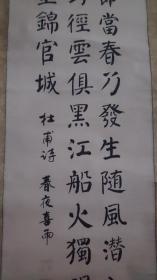 節當春乃發生隨風潛
野徑雲俱黑江船火獨明
重錦官城
杜甫詩 春夜喜雨